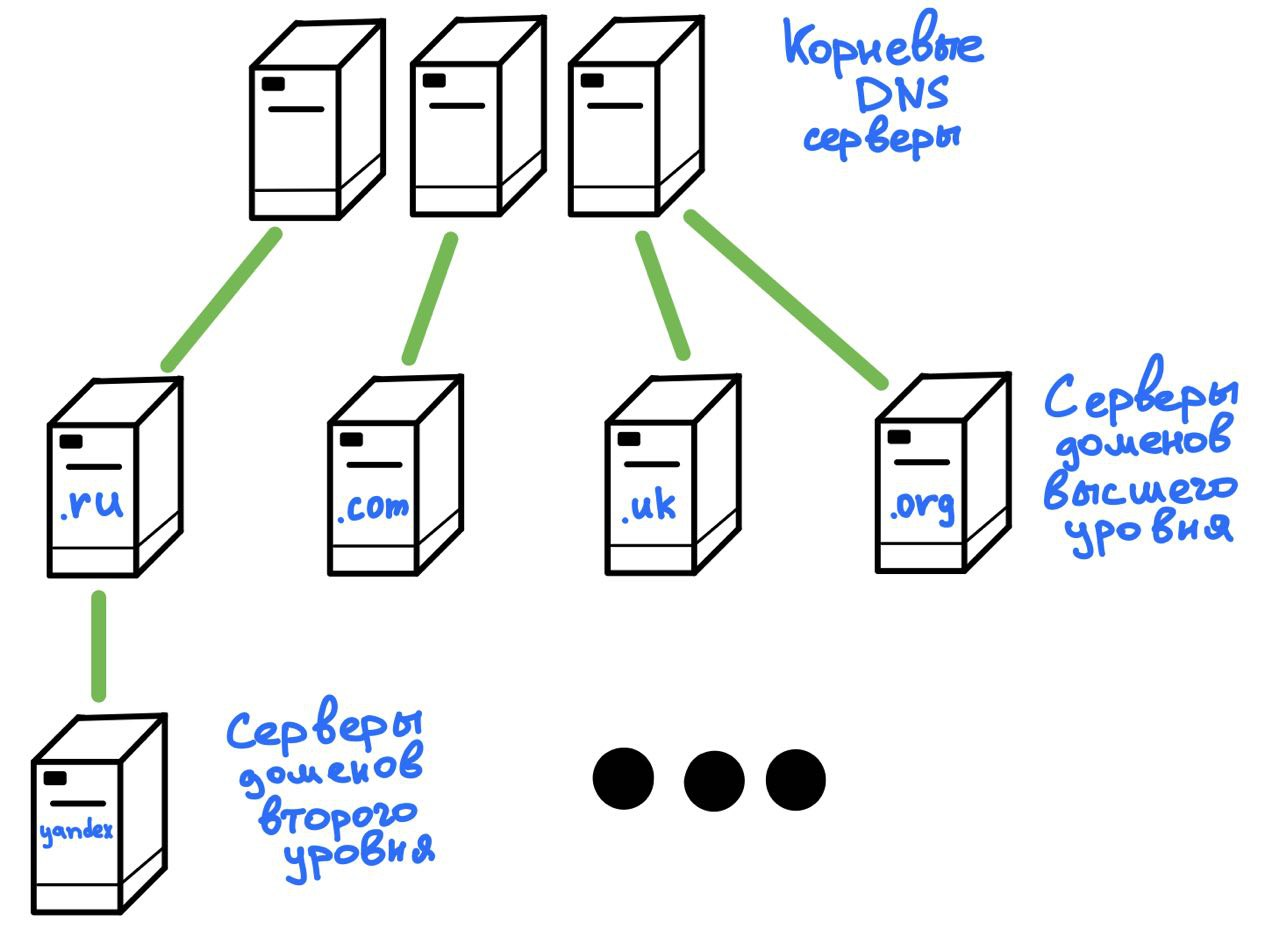 Корневые
DNS
серверы
.ru
.com
.uk
.org
Серверы
доменов
высшего
уровня
yandex
Серверы
доменов
второго
уровня